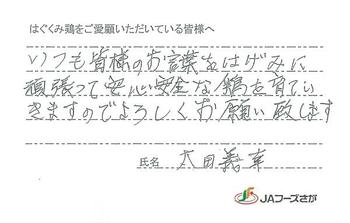 はぐくみ鶏をご愛顧いただいている皆様へ
いつも皆様のお言葉をはげみに
頑張って安心安全な鶏を育てい
きますのでよろしくお願い致します
氏名 太田義幸
JAフーズさが